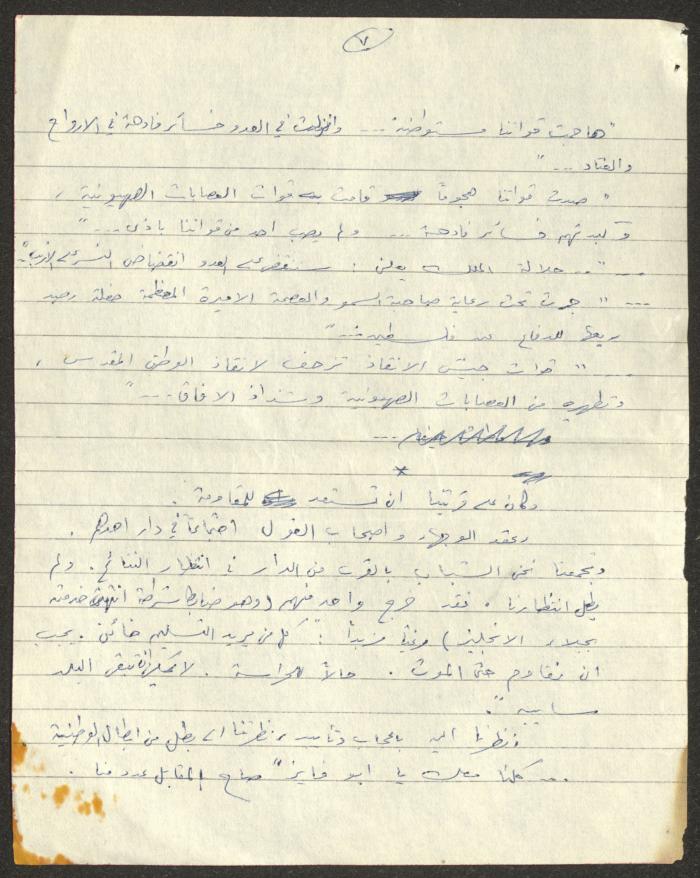 ٧
"هاجمت قواتنا مستوطنة .... وانزلت في العدو خسائر فادحة في الارواح
والعتاد ..."
" صدت قواتنا هجوماً قامت به قوات العصابات الصهيونية ،
وكبدتهم خسائر فادحة .... ولم يصب احد من قواتنا باذى ...."
.... " .. جلالة الملك يعلن : سننقض على العدو انقضاض النسر على
.... " جرت تحت رعاية صاحبة السمو والعصمة الاميرة المعظمة حفلة رصد
ريعها للدفاع عن فلسطين ..."
.... " قوات جيش الانقاذ تزحف لانقاذ الوطن المقدس ،
وتطهيره من العصابات الصهيونية وشذاذ الافاق ...."
...
*
وكان على قريتنا ان تستعد للمقاومة .
وعقد الوجهاء واصحاب القول اجتماعاً في دار احدهم .
وتجمعنا نحن الشباب بالقرب من الدار في انتظار النتائج . ولم
يطل انتظارنا ، فقد خرج واحد منهم (وهو ضابط شرطة انتهت خدمته
بجلاء الانجليز) مزبداً : " كل من يريد التسليم خائن . يجب
ان نقاوم حتى الموت . حالاً للحراسة . لا يمكن ان تبقى البلد
سايبه ".
ونظرنا اليه باعجاب وتأييد ، نظرتنا الى بطل من ابطال الوطنية
... كلنا معك يا ابو فايز " صاح المقابل عدد منا .